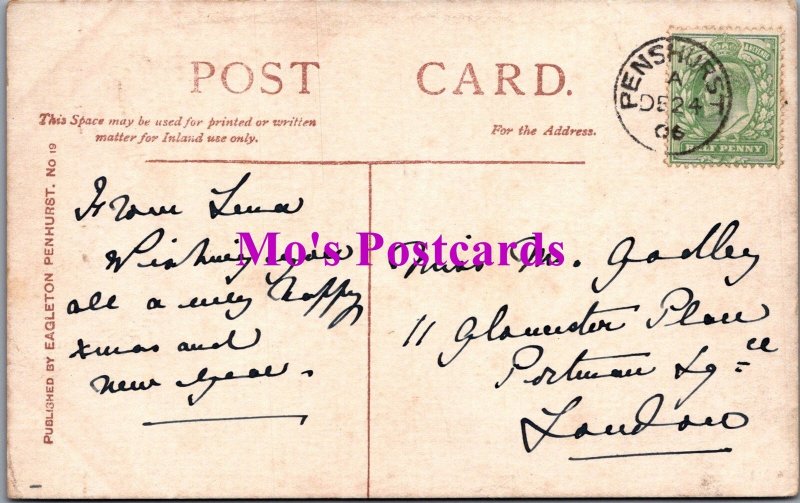 POST CARD.
This Space may be used for printed or written
matter for Inland use only.
For the Address.
PENSHURST
A
DE 24
06
HALF PENNY
PUBLISHED BY EAGLETON PENHURST. No 19
From Lena
Wishing you
all a very Happy
Xmas and
New Year.
Mo's Postcards
Miss M. Godley
11 Gloucester Place
Portman Sqre
London